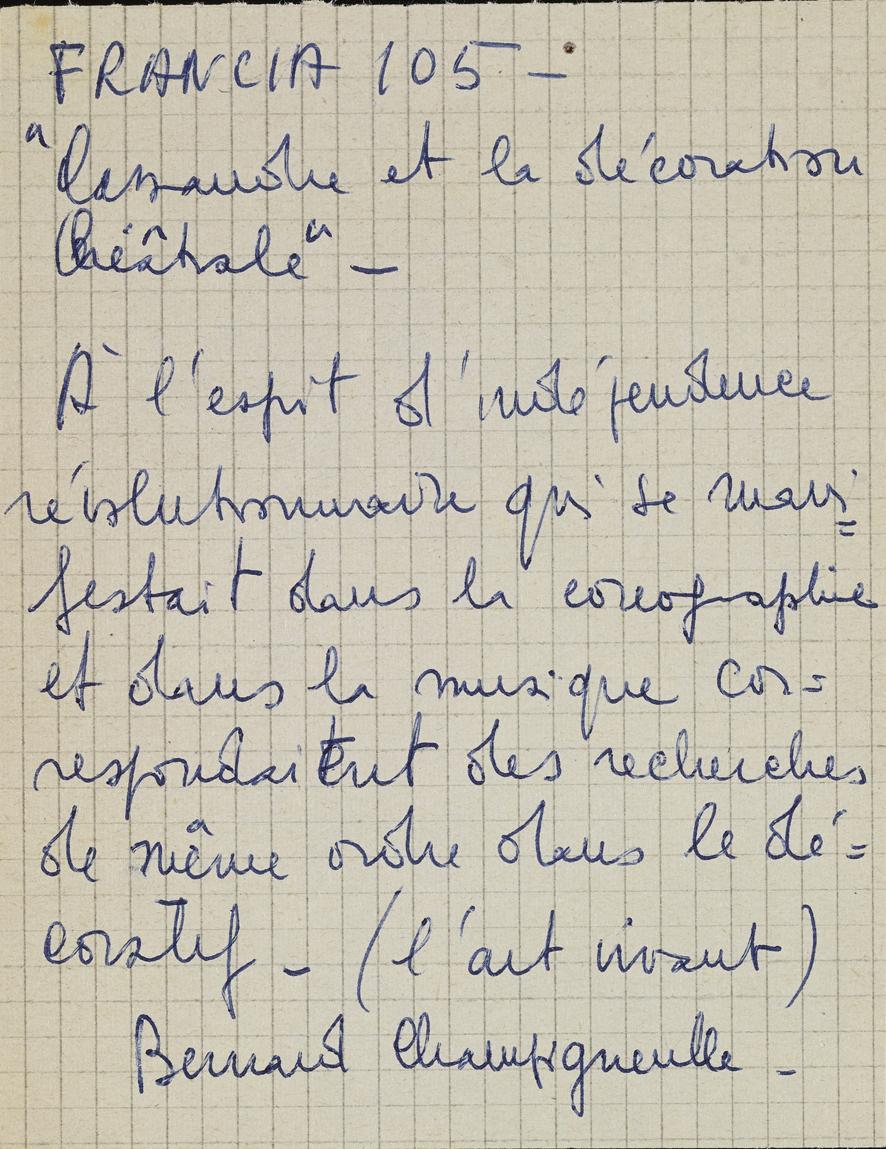 FRANCIA 105 -
"Cassandre et la décoration
théâtrale" -
À l'esprit d'indépendence
révolutionnaire qui se mani=
festait dans la coreographie
et dans la musique cor=
respondaient des recherches
de même ordre dans le dé=
coratif - (l'art vivant)
Bernard Champigneulle -